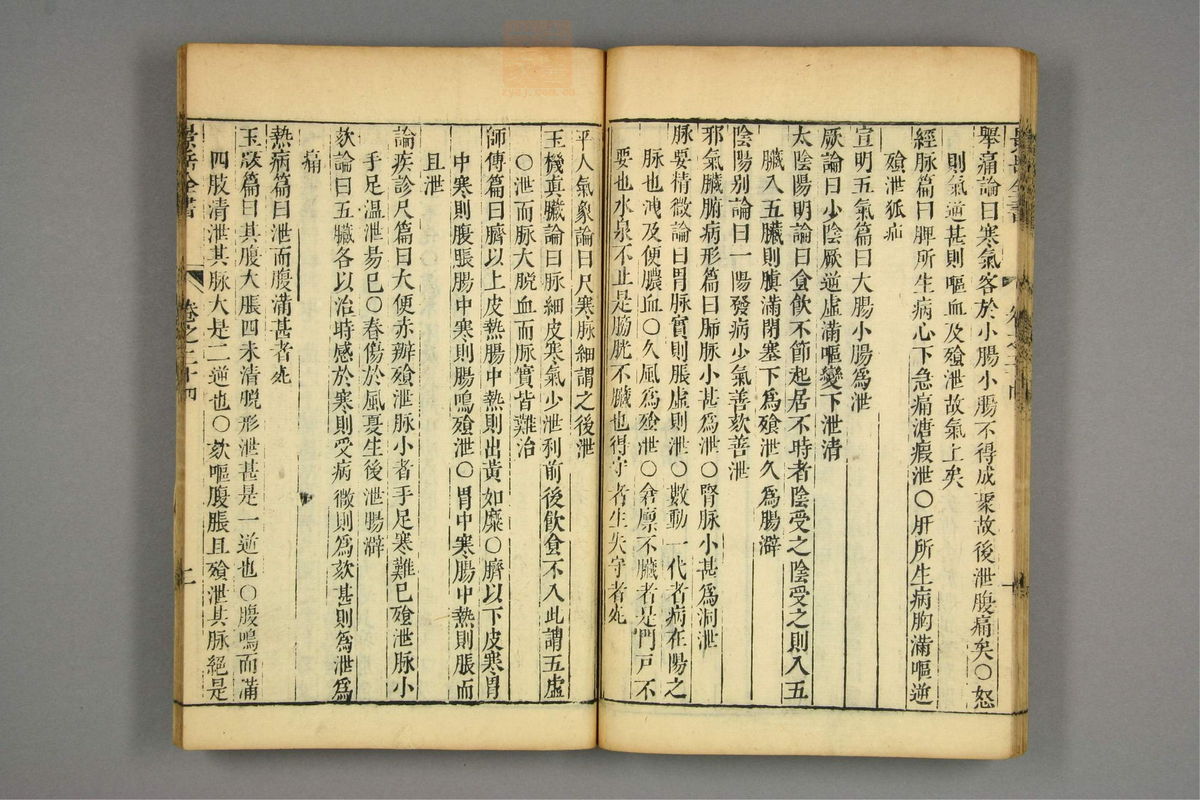 舉痛論曰寒氣客於小腸小腸不得成聚故後泄腹痛矣〇怒
則氣逆甚則嘔血及飱泄故氣上矣
經脉篇曰脾所生病心下急痛溏瘕泄〇肝所生病胸滿嘔逆
飱泄狐疝
宣明五氣篇曰大腸小腸爲泄
厥論曰少陰厥逆虛滿嘔變下泄清
太陰陽明論曰食飲不節起居不時者陰受之陰受之則入五
臟入五臟則䐜滿閉塞下爲飱泄久爲腸澼
陰陽别論曰一陽發病少氣善欬善泄
邪氣臟腑病形篇曰肺脉小甚爲泄〇腎脉小甚爲洞泄
脉要精微論曰胃脉實則脹虛則泄〇數動一代者病在陽之
脉也洩及便膿血〇久風爲飱泄〇倉廪不臟者是門戸不
要也水泉不止是膀胱不臟也得守者生失守者死
平人氣象論曰尺寒脉細謂之後泄
玉機真臟論曰脉細皮寒氣少泄利前後飲食不入此謂五虛
〇泄而脉大脱血而脉實皆難治
師傳篇曰臍以上皮熱腸中熱則出黄如糜〇臍以下皮寒胃
中寒則腹脹腸中寒則腸鳴飱泄〇胃中寒腸中熱則脹而
且泄
論疾診尺篇曰大便赤瓣飱泄脉小者手足寒難已飱泄脉小
手足温泄易已〇春傷於風夏生後泄腸澼
欬論曰五臟各以治時感於寒則受病微則爲欬甚則爲泄爲
痛
熱病篇曰泄而腹滿甚者死
玉版篇曰其腹大脹四末清脱形泄甚是一逆也〇腹鳴而滿
四肢清泄其脉大是二逆也〇欬嘔腹脹且飱泄其脉絕是
景岳全書
卷之二十四